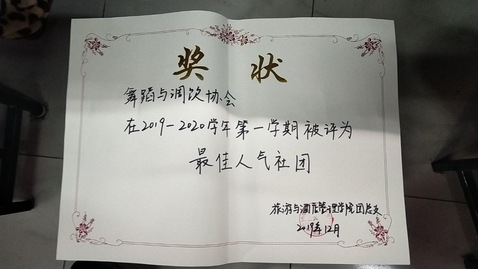 奖状
舞蹈与调饮协会
在2019-2020学年第一学期被评为
最佳人气社团
旅游与酒店管理学院团总支
2019年12月